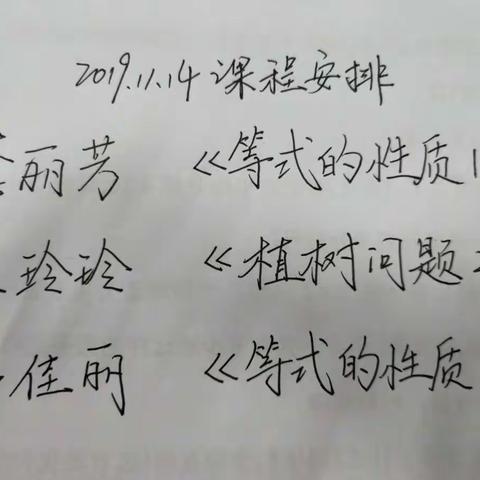 2019.11.14 课程安排
丽芳 《等式的性质
玲玲 《植树问题
佳丽 《等式的性质